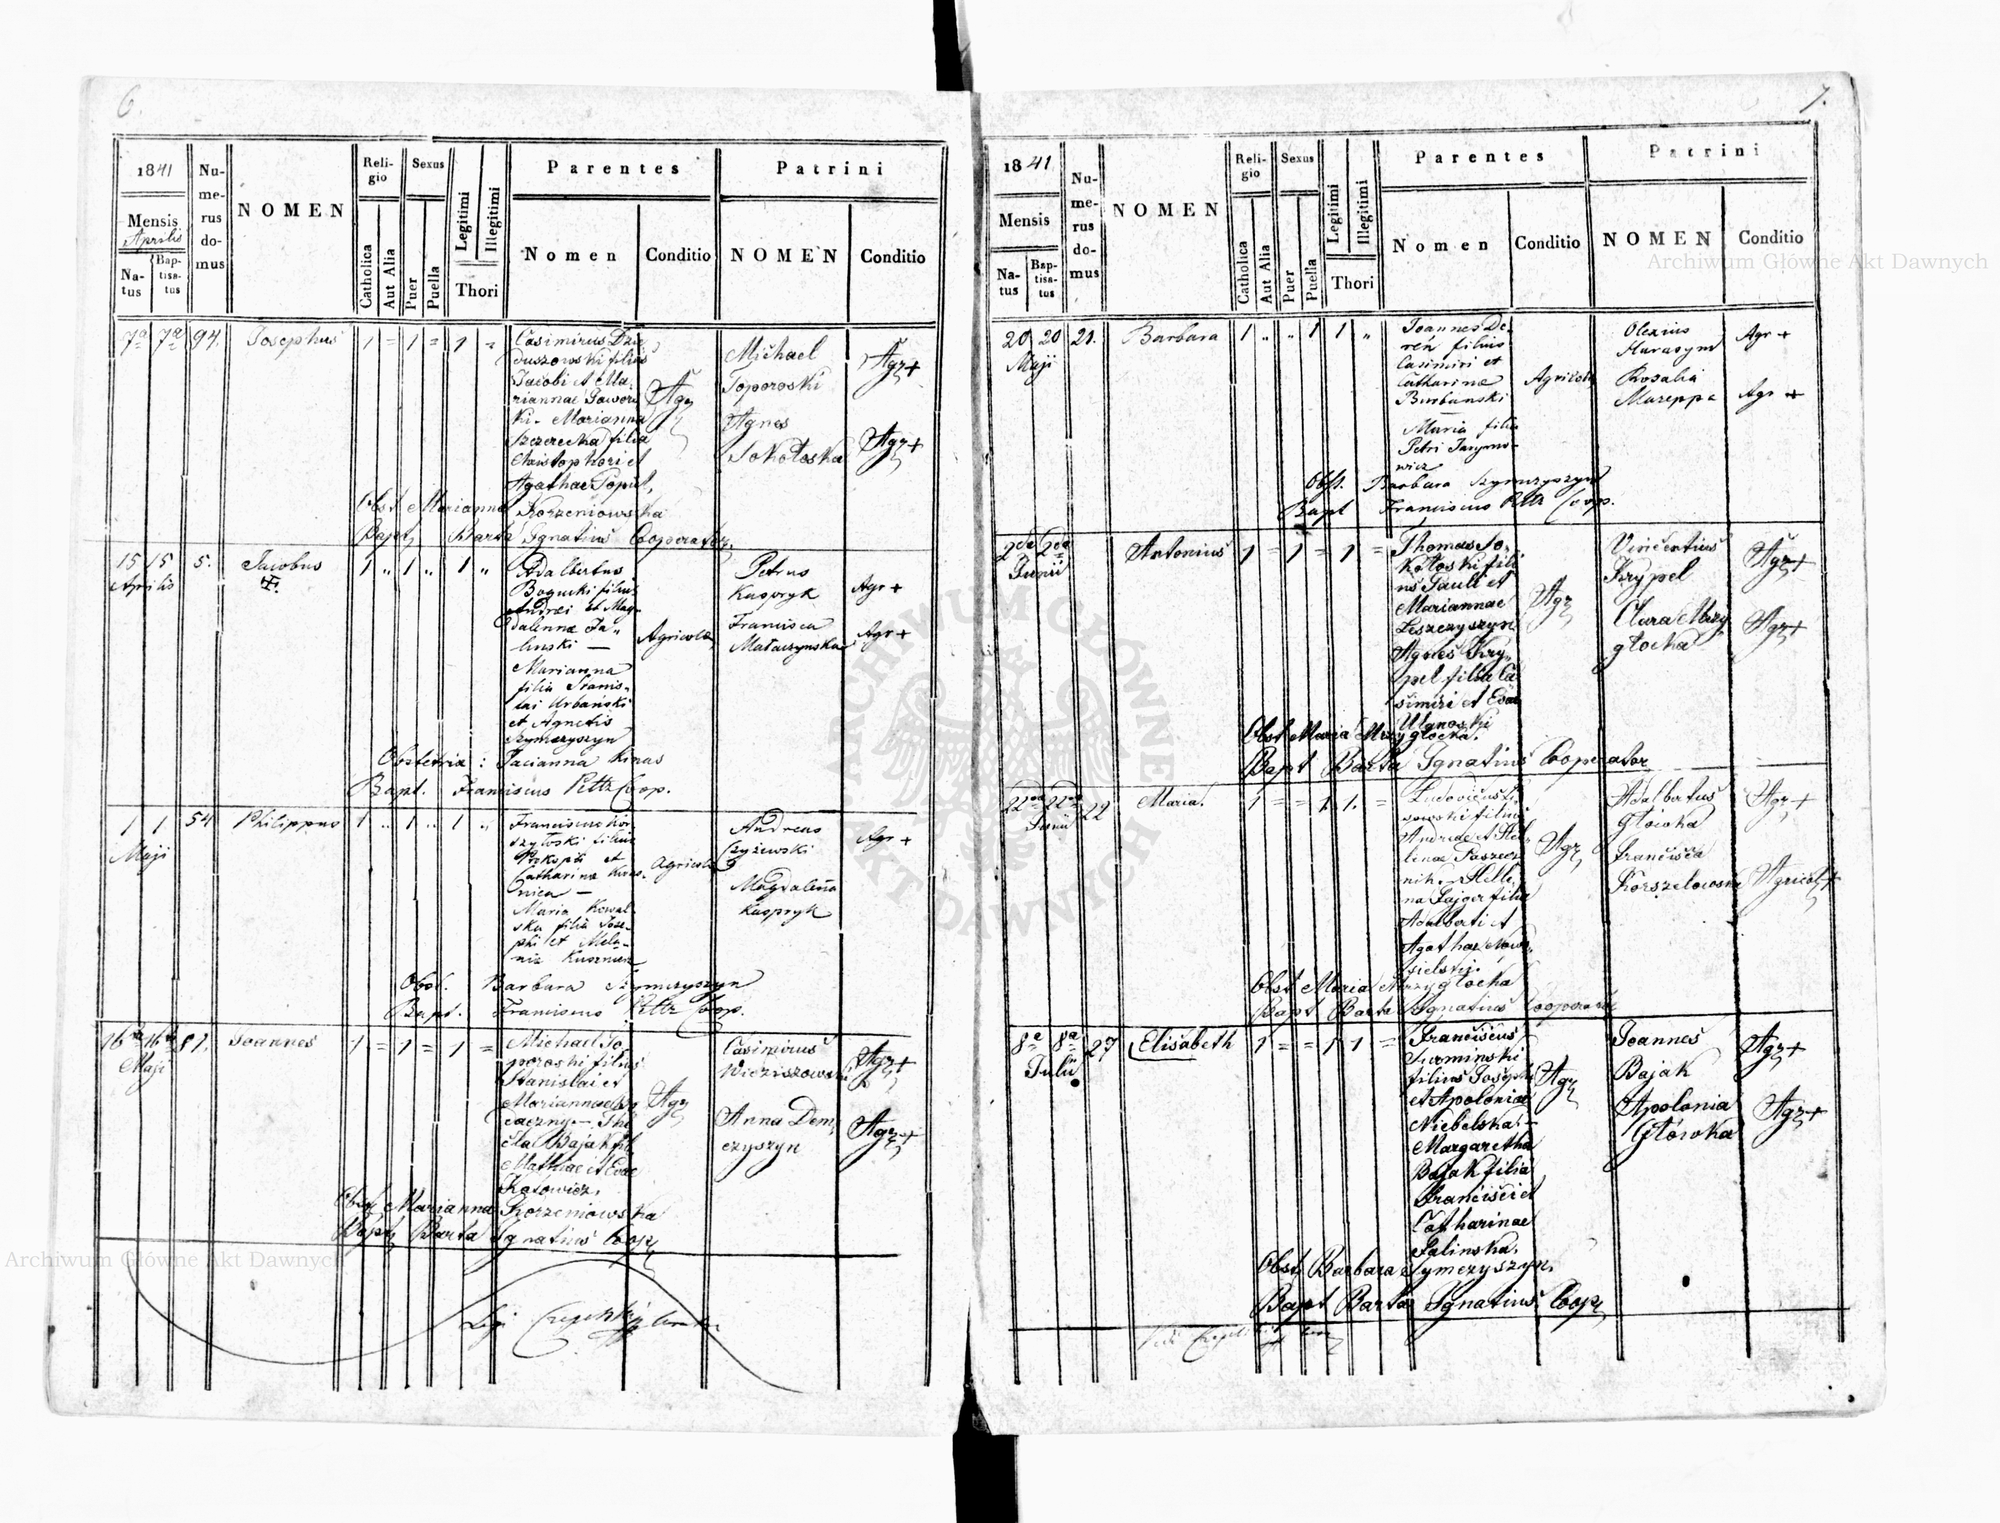 6.
1841
Mensis
Aprilis
Natus
Baptisatus
Numerus domus
NOMEN
Religio
Catholica
Aut Alia
Sexus
Puer
Puella
Legitimi
Illegitimi
Thori
Parentes
Nomen
Conditio
Patrini
NOMEN
Conditio
7a 7a 94. Josephus 1 = 1 = 1 =
Casimirus Dzie
duszowski filius
Jacobi et Ma-
riannae Jawor
ki. Marianna
Szczerecka filia
Christophori et
Agathae
Agr
Michael
Toporoski
Agr +
Agnes
Sokołoska
Agr +
Obst Marianna Korzeniowska
Bapt Barta Ignatius Cooperator.
15 15 5. Jacobus 1 „ 1 „ 1 „
Aprilis
Adalbertus
Bogucki filius
Andrei et Mag-
dalennae Ja„
linski —
Marianna
filia Stanis-
lai Urbański
et Agnetis
Szymczyszyn
Agricola
Petrus
Kaspryk
Agr +
Francisca
Mataczynska
Agr +
Obstetrix : Tacianna Kinas
Bapt. Franciscus Pettz Coop.
1 1 54 Philippus 1 „ 1 „ 1 „
Maji
Franciscus
filius
Prokopii et
Catharinae
—
Maria Kowal-
ska filia Jose-
phi et Mela-
nia
Agricola
Andreas
Czyżewski
Agr +
Magdalena
Kaspryk
Obst. Barbara Szymczyszyn
Bapt. Franciscus Pettz Coop.
16ta 16ta 81. Joannes 1 = 1 = 1 =
Maji
Michael To-
poroski filius
Stanislai et
Mariannae
The
cla Bajak fil
Mathiae et Evae
Katowicz.
Agr
Casimirus
Wieziszowski
Agr +
Anna Dem
czyszyn
Agr +
Obst Marianna Korzeniowska
Bapt Barta Ignatius Coop
7.
1841
Mensis
Natus
Baptisatus
Numerus domus
NOMEN
Religio
Catholica
Aut Alia
Sexus
Puer
Puella
Legitimi
Illegitimi
Thori
Parentes
Nomen
Conditio
Patrini
NOMEN
Conditio
20 20 21. Barbara 1 „ „ 1 1 „
Maji
Joannes De-
reń filius
Casimiri et
Catharinae
Burbanski
—
Maria filia
Petri Jarymo-
wicz
Agricola
Olexius
Harasym
Agr +
Rosalia
Mazeppa
Agr +
Obst. Barbara Szymczyszyn
Bapt Franciscus Pettz Coop.
2da 2da Antonius 1 = 1 = 1 =
Junii
Thomas So-
kołoski fili
us Pauli et
Mariannae
Leszczyszyn
Agnes Kry-
pel filia Ca
simiri et Evae
Ulanoski
Agr
Vincentius
Krypel
Agr +
Clara Mrzy
głocka
Agr +
Obst Maria Mrzygłocka.
Bapt Barta Ignatius Cooperator
22da 22da 22 Maria. 1 = = 1 1. =
Junii
sowski filius
Andreae et Hel-
lenae
Helle-
na Jajger filia
Adalberti et
Agathae
Agr
Adalbertus
Głowka
Agr +
Francisca
Korszelowska
Agricol +
Obst Maria Mrzygłocka
Bapt Barta Ignatius Cooperator
8a 8a 27 Elisabeth 1 = = 1 1 =
Julii
Franciscus
Surminski
filius Josephi
et Apoloniae
Niebelska. —
Margaretha
Bajak filia
Francisci et
Catharinae
Jalinska.
Agr
Joannes
Bajak
Agr +
Apolonia
Głowka
Agr +
Obst Barbara Symczyszyn.
Bapt Barta Ignatius Coop
Archiwum Główne Akt Dawnych
Archiwum Główne Akt Dawnych
ARCHIWUM GŁÓWNE
AKT DAWNYCH